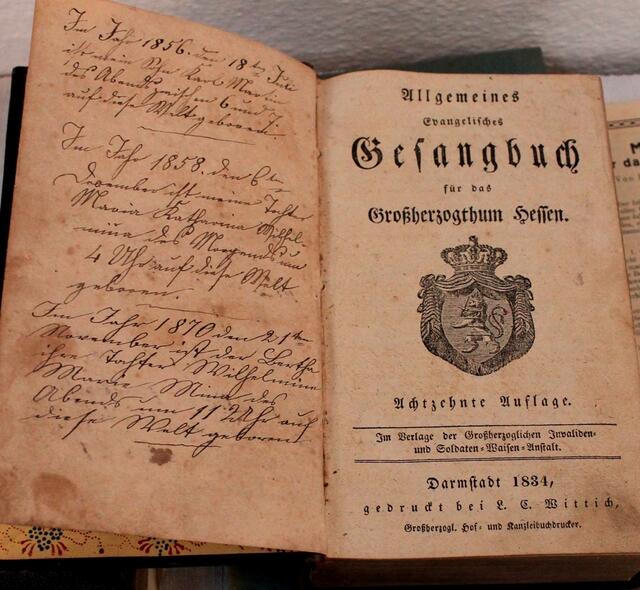 Im Jahr 1856. den 18ten Juli
ist mein Sohn Karl Martin
des Abends zwischen 6 und 7
auf diese Welt geboren.
Im Jahr 1858. den 6te
Dezember ist meine Tochter
Maria Katharina Wilhel-
mina des Morgends um
4 Uhr auf diese Welt
geboren.
Im Jahr 1870 den 21ten
November ist der Bertha
ihre Tochter Wilhelmine
Marie Mina des
Abends um 11 Uhr auf
diese Welt geboren
Allgemeines
Evangelisches
Gesangbuch
für das
Großherzogthum Hessen.
Achtzehnte Auflage.
Im Verlage der Großherzoglichen Invaliden-
und Soldaten-Waisen-Anstalt.
Darmstadt 1834,
gedruckt bei L. C. Wittich,
Großherzogl. Hof- und Kanzleibuchdrucker.